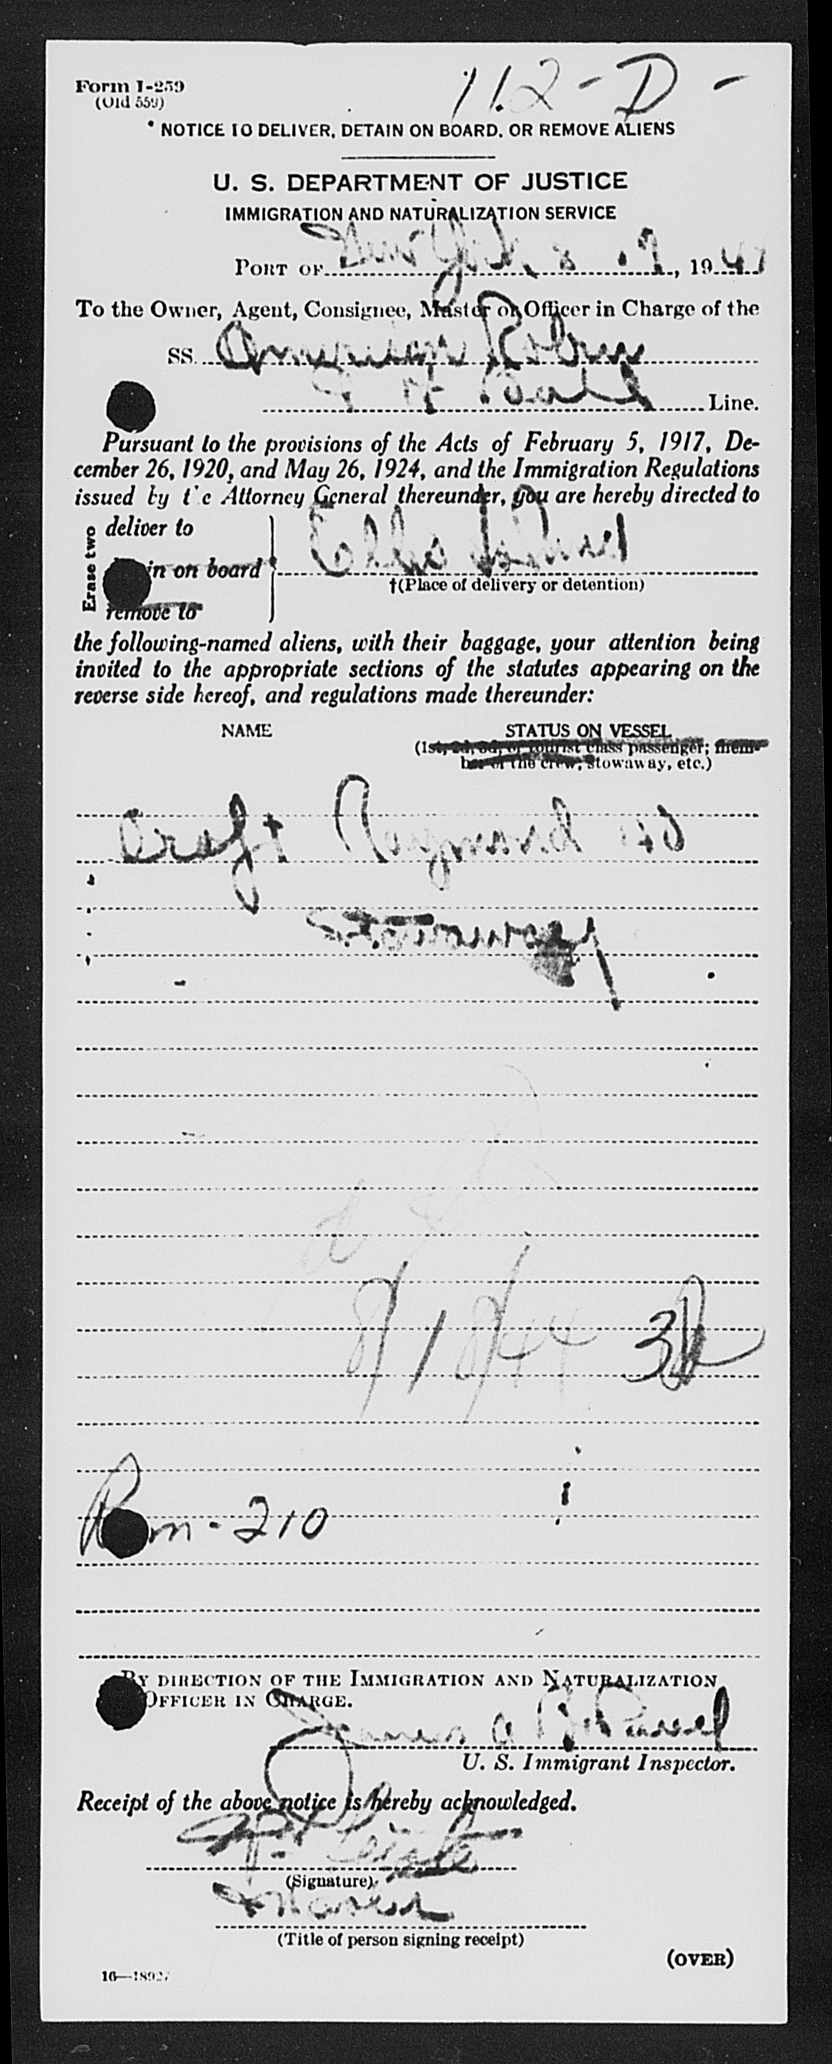 112-D-
Form I-259
(Old 559)
NOTICE TO DELIVER, DETAIN ON BOARD, OR REMOVE ALIENS
U. S. DEPARTMENT OF JUSTICE
IMMIGRATION AND NATURALIZATION SERVICE
PORT OF New York 8 . 7, 194
To the Owner, Agent, Consignee, Master or Officer in Charge of the
SS. American Robin
Line.
Pursuant to the provisions of the Acts of February 5, 1917, De-
cember 26, 1920, and May 26, 1924, and the Immigration Regulations
issued by the Attorney General thereunder, you are hereby directed to
Erase two
deliver to
in on board
remove to
Ellis Island
†(Place of delivery or detention)
the following-named aliens, with their baggage, your attention being
invited to the appropriate sections of the statutes appearing on the
reverse side hereof, and regulations made thereunder:
NAME STATUS ON VESSEL
(1st, 2d, 3d, or tourist class passenger; mem-
ber of the crew, stowaway, etc.)
Craft Raymond 40
Stowaway
8/18/44 3
Rm-210
BY DIRECTION OF THE IMMIGRATION AND NATURALIZATION
OFFICER IN CHARGE.
James A
U. S. Immigrant Inspector.
Receipt of the above notice is hereby acknowledged.
(Signature)
Master
(Title of person signing receipt)
(OVER)
16—18927